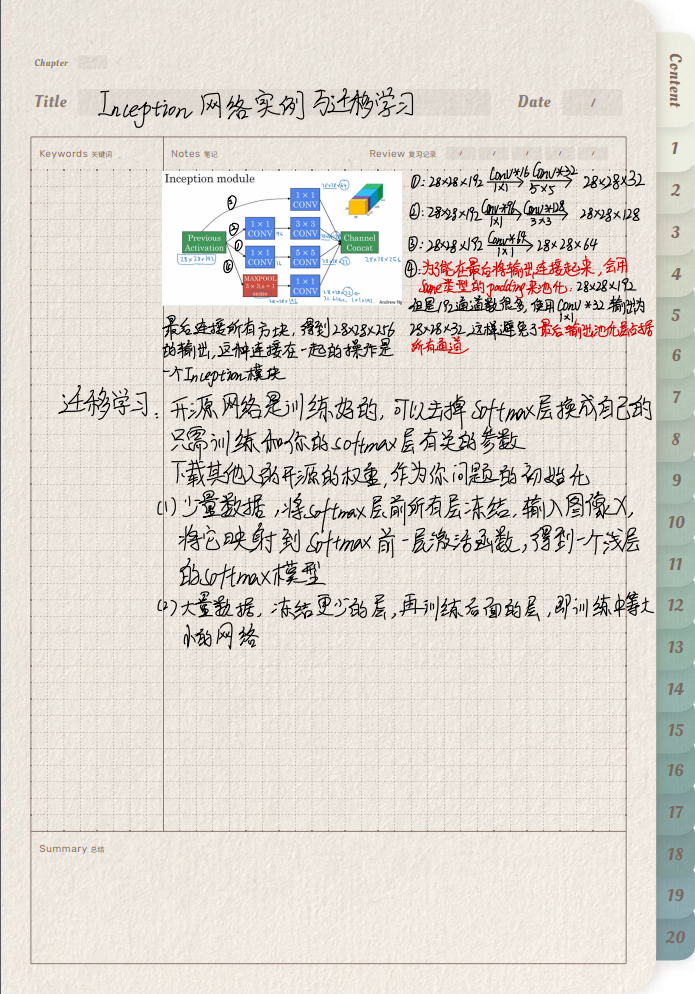 Chapter
Title Inception 网络实例与迁移学习 Date /
Content
Keywords 关键词 Notes 笔记 Review 复习记录 / / / / /
Inception module
Previous Activation
28×28×192
1 × 1 CONV
1 × 1 CONV
3 × 3 CONV
1 × 1 CONV
5 × 5 CONV
MAXPOOL 3 × 3,s = 1 same
1 × 1 CONV
Channel Concat
28×28×256
Andrew Ng
①: 28×28×192 Conv*16 1×1 Conv*32 5×5 28×28×32
②: 28×28×192 Conv*96 1×1 Conv*128 3×3 28×28×128
③: 28×28×192 Conv*64 1×1 28×28×64
④: 为了能在最后将输出连接起来,会用
Same类型的padding来池化: 28×28×192
但是192通道数很多,使用Conv*32 1×1 输出为
28×28×32,这样避免了最后输出池化层占据
所有通道
最后连接所有方块,得到28×28×256
的输出,这种连接在一起的操作是
一个Inception模块
迁移学习: 开源网络是训练好的,可以去掉softmax层换成自己的
只需训练和你的softmax层有关的参数
下载其他人的开源的权重,作为你问题的初始化
(1) 少量数据,将softmax层前所有层冻结,输入图像X,
将它映射到softmax前一层激活函数,得到一个浅层
的softmax模型
(2) 大量数据,冻结更少的层,再训练后面的层,即训练中等大
小的网络
Summary 总结
1
2
3
4
5
6
7
8
9
10
11
12
13
14
15
16
17
18
19
20